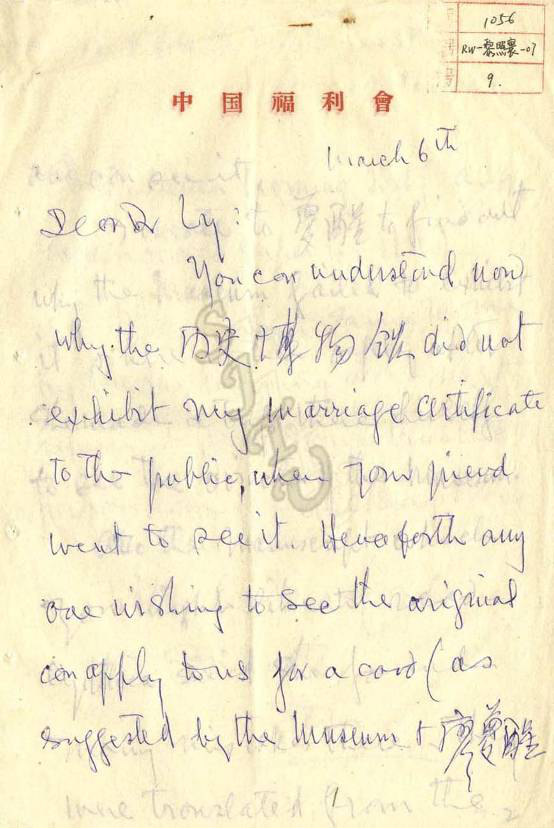 1056
RW-黎照寰-07
9.
中国福利會
March 6th
Dear Dr Ly:
You can understand now
why the 历史博物馆 did not
exhibit my marriage certificate
to the public, when your friend
went to see it. Henceforth any
one wishing to see the original
can apply to us for a card (as
suggested by the Museum + 廖夢醒
1